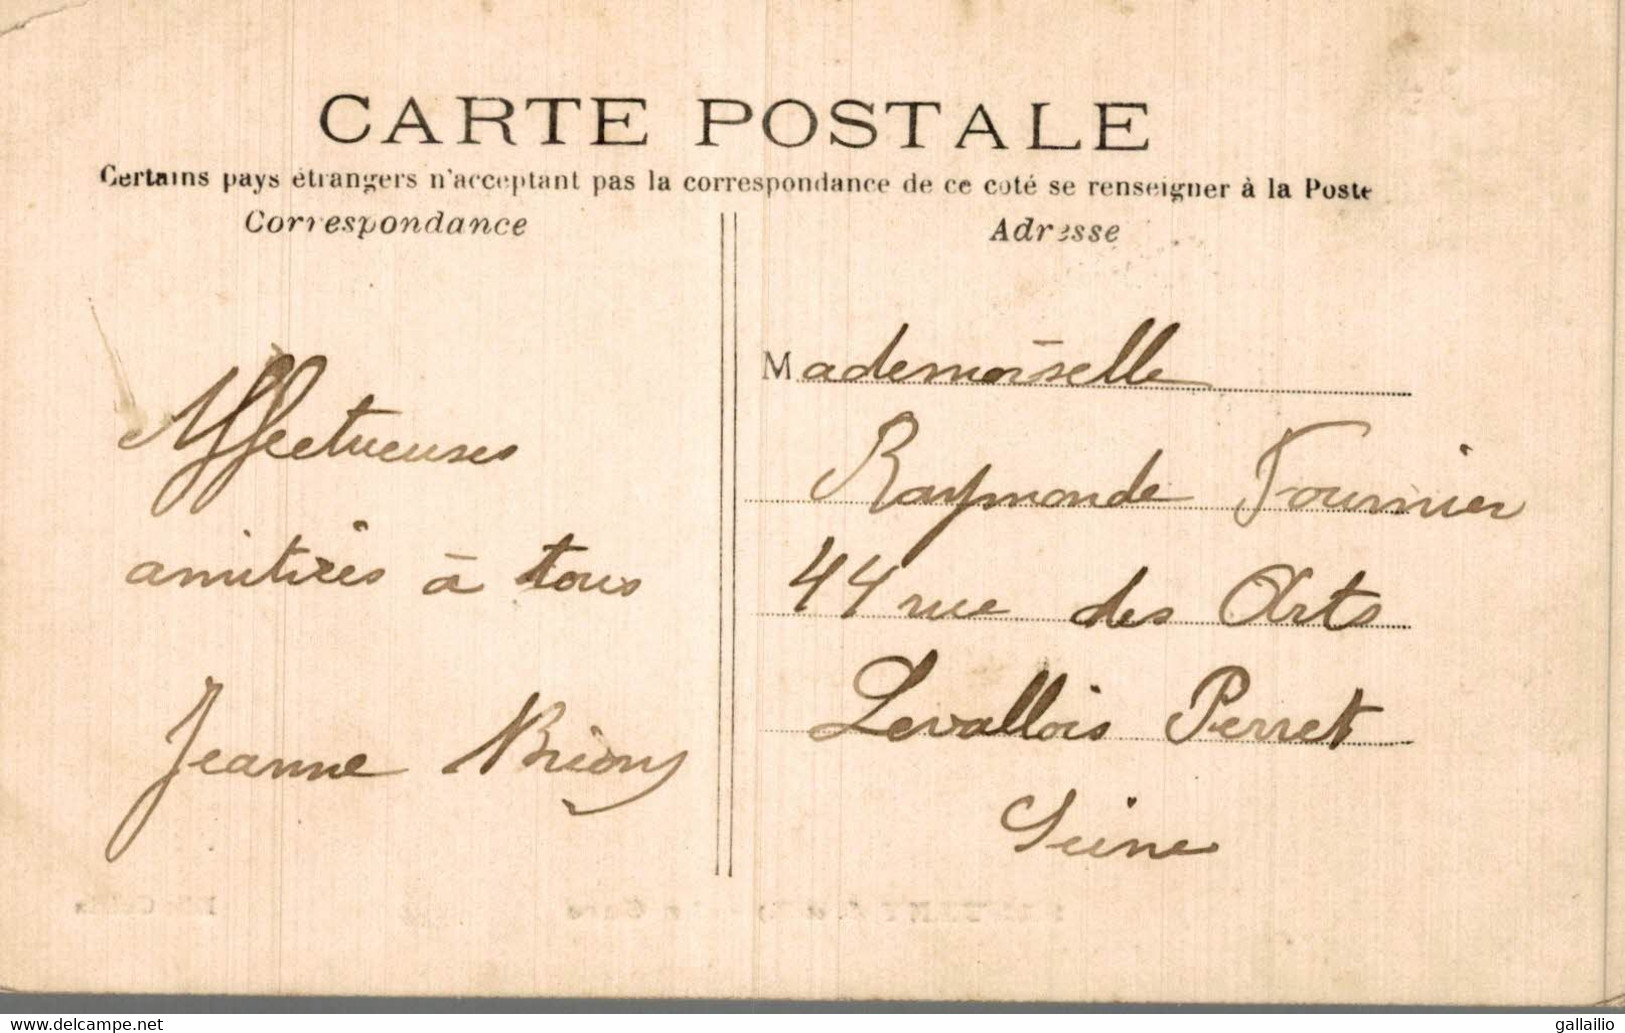 CARTE POSTALE
Certains pays étrangers n'acceptant pas la correspondance de ce coté se renseigner à la Poste
Correspondance
Adresse
Affectueuses
amitiés à tous
Jeanne
Mademoiselle
Raymonde Fournier
44 rue des Arts
Levallois Perret
Seine
gallailio